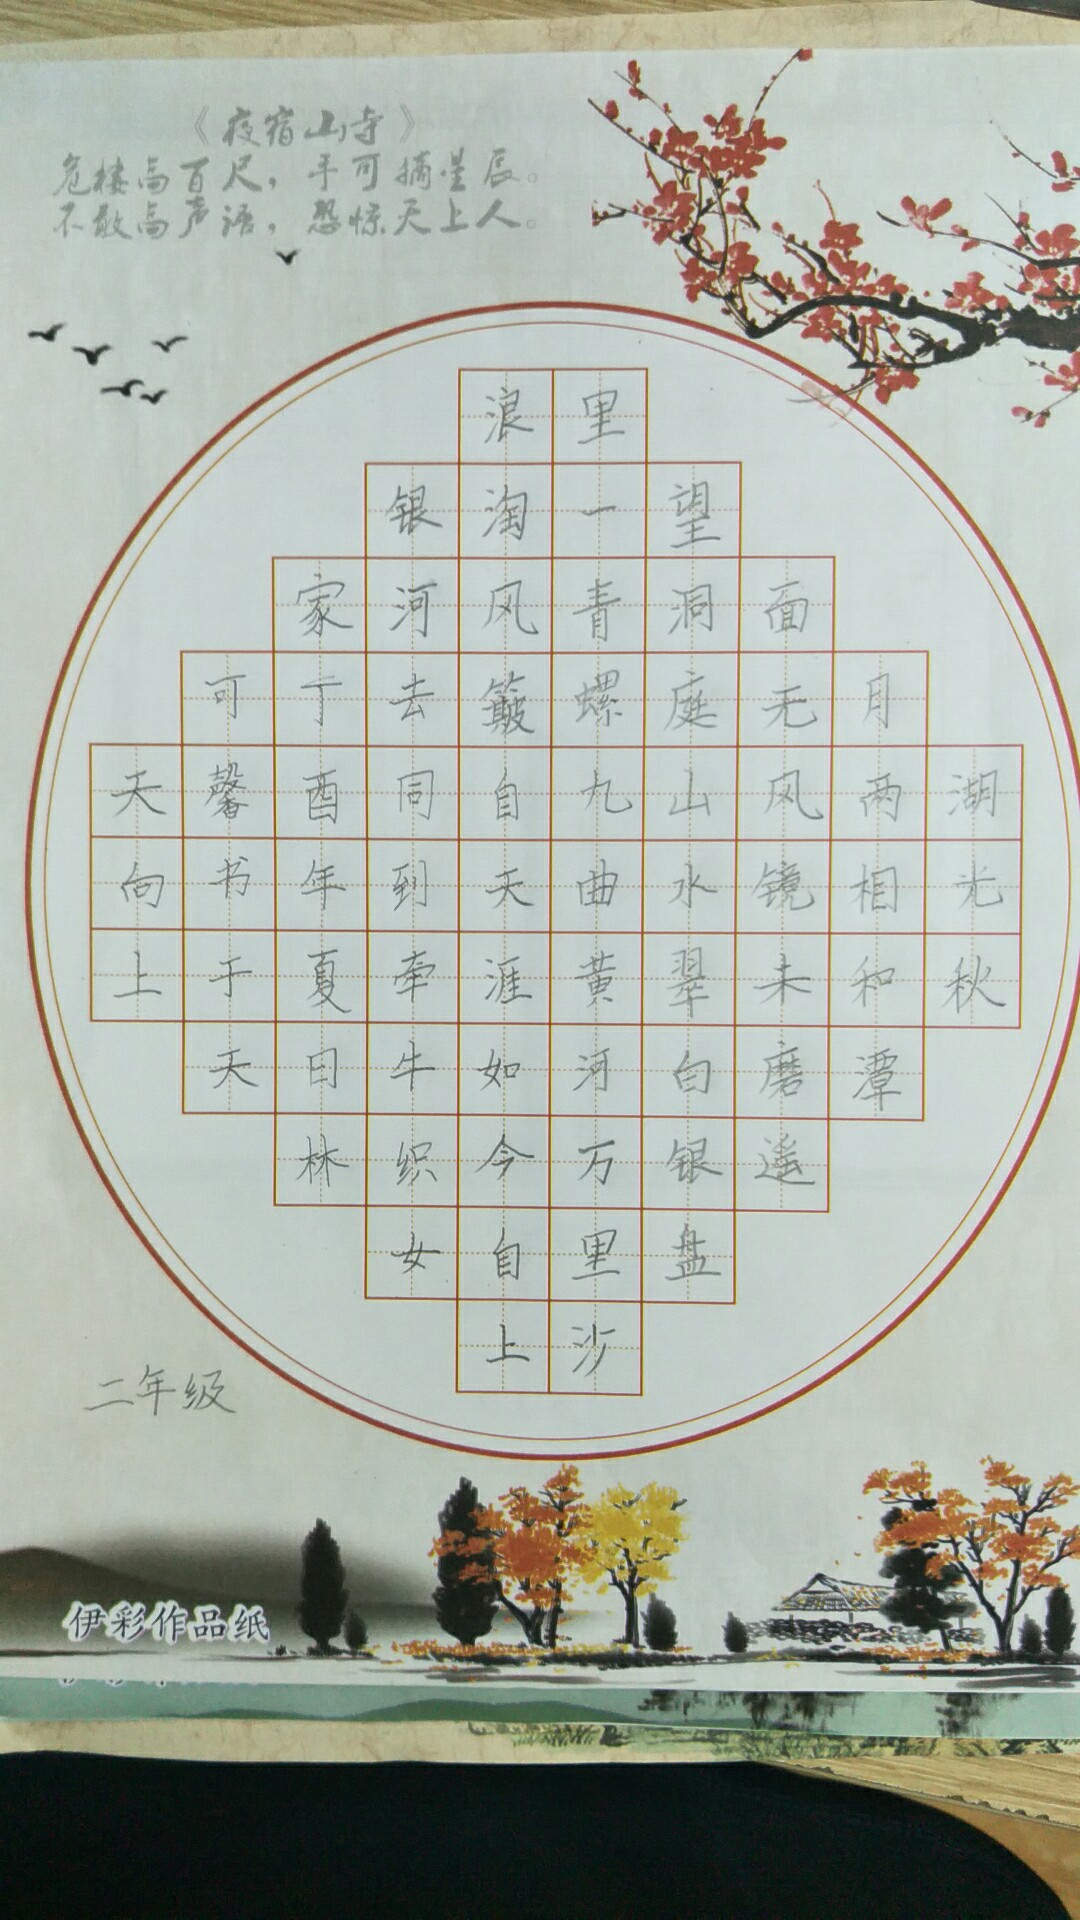 《夜宿山寺》
危楼高百尺，手可摘星辰。
不敢高声语，恐惊天上人。
湖光秋
月两相和潭
面无风镜未磨遥
望洞庭山水翠白银盘
里一青螺九曲黄河万里沙
浪淘风簸自天涯如今自上
银河去同到牵牛织女
家丁酉年夏日林
可馨书于天
天向上
二年级
伊彩作品纸